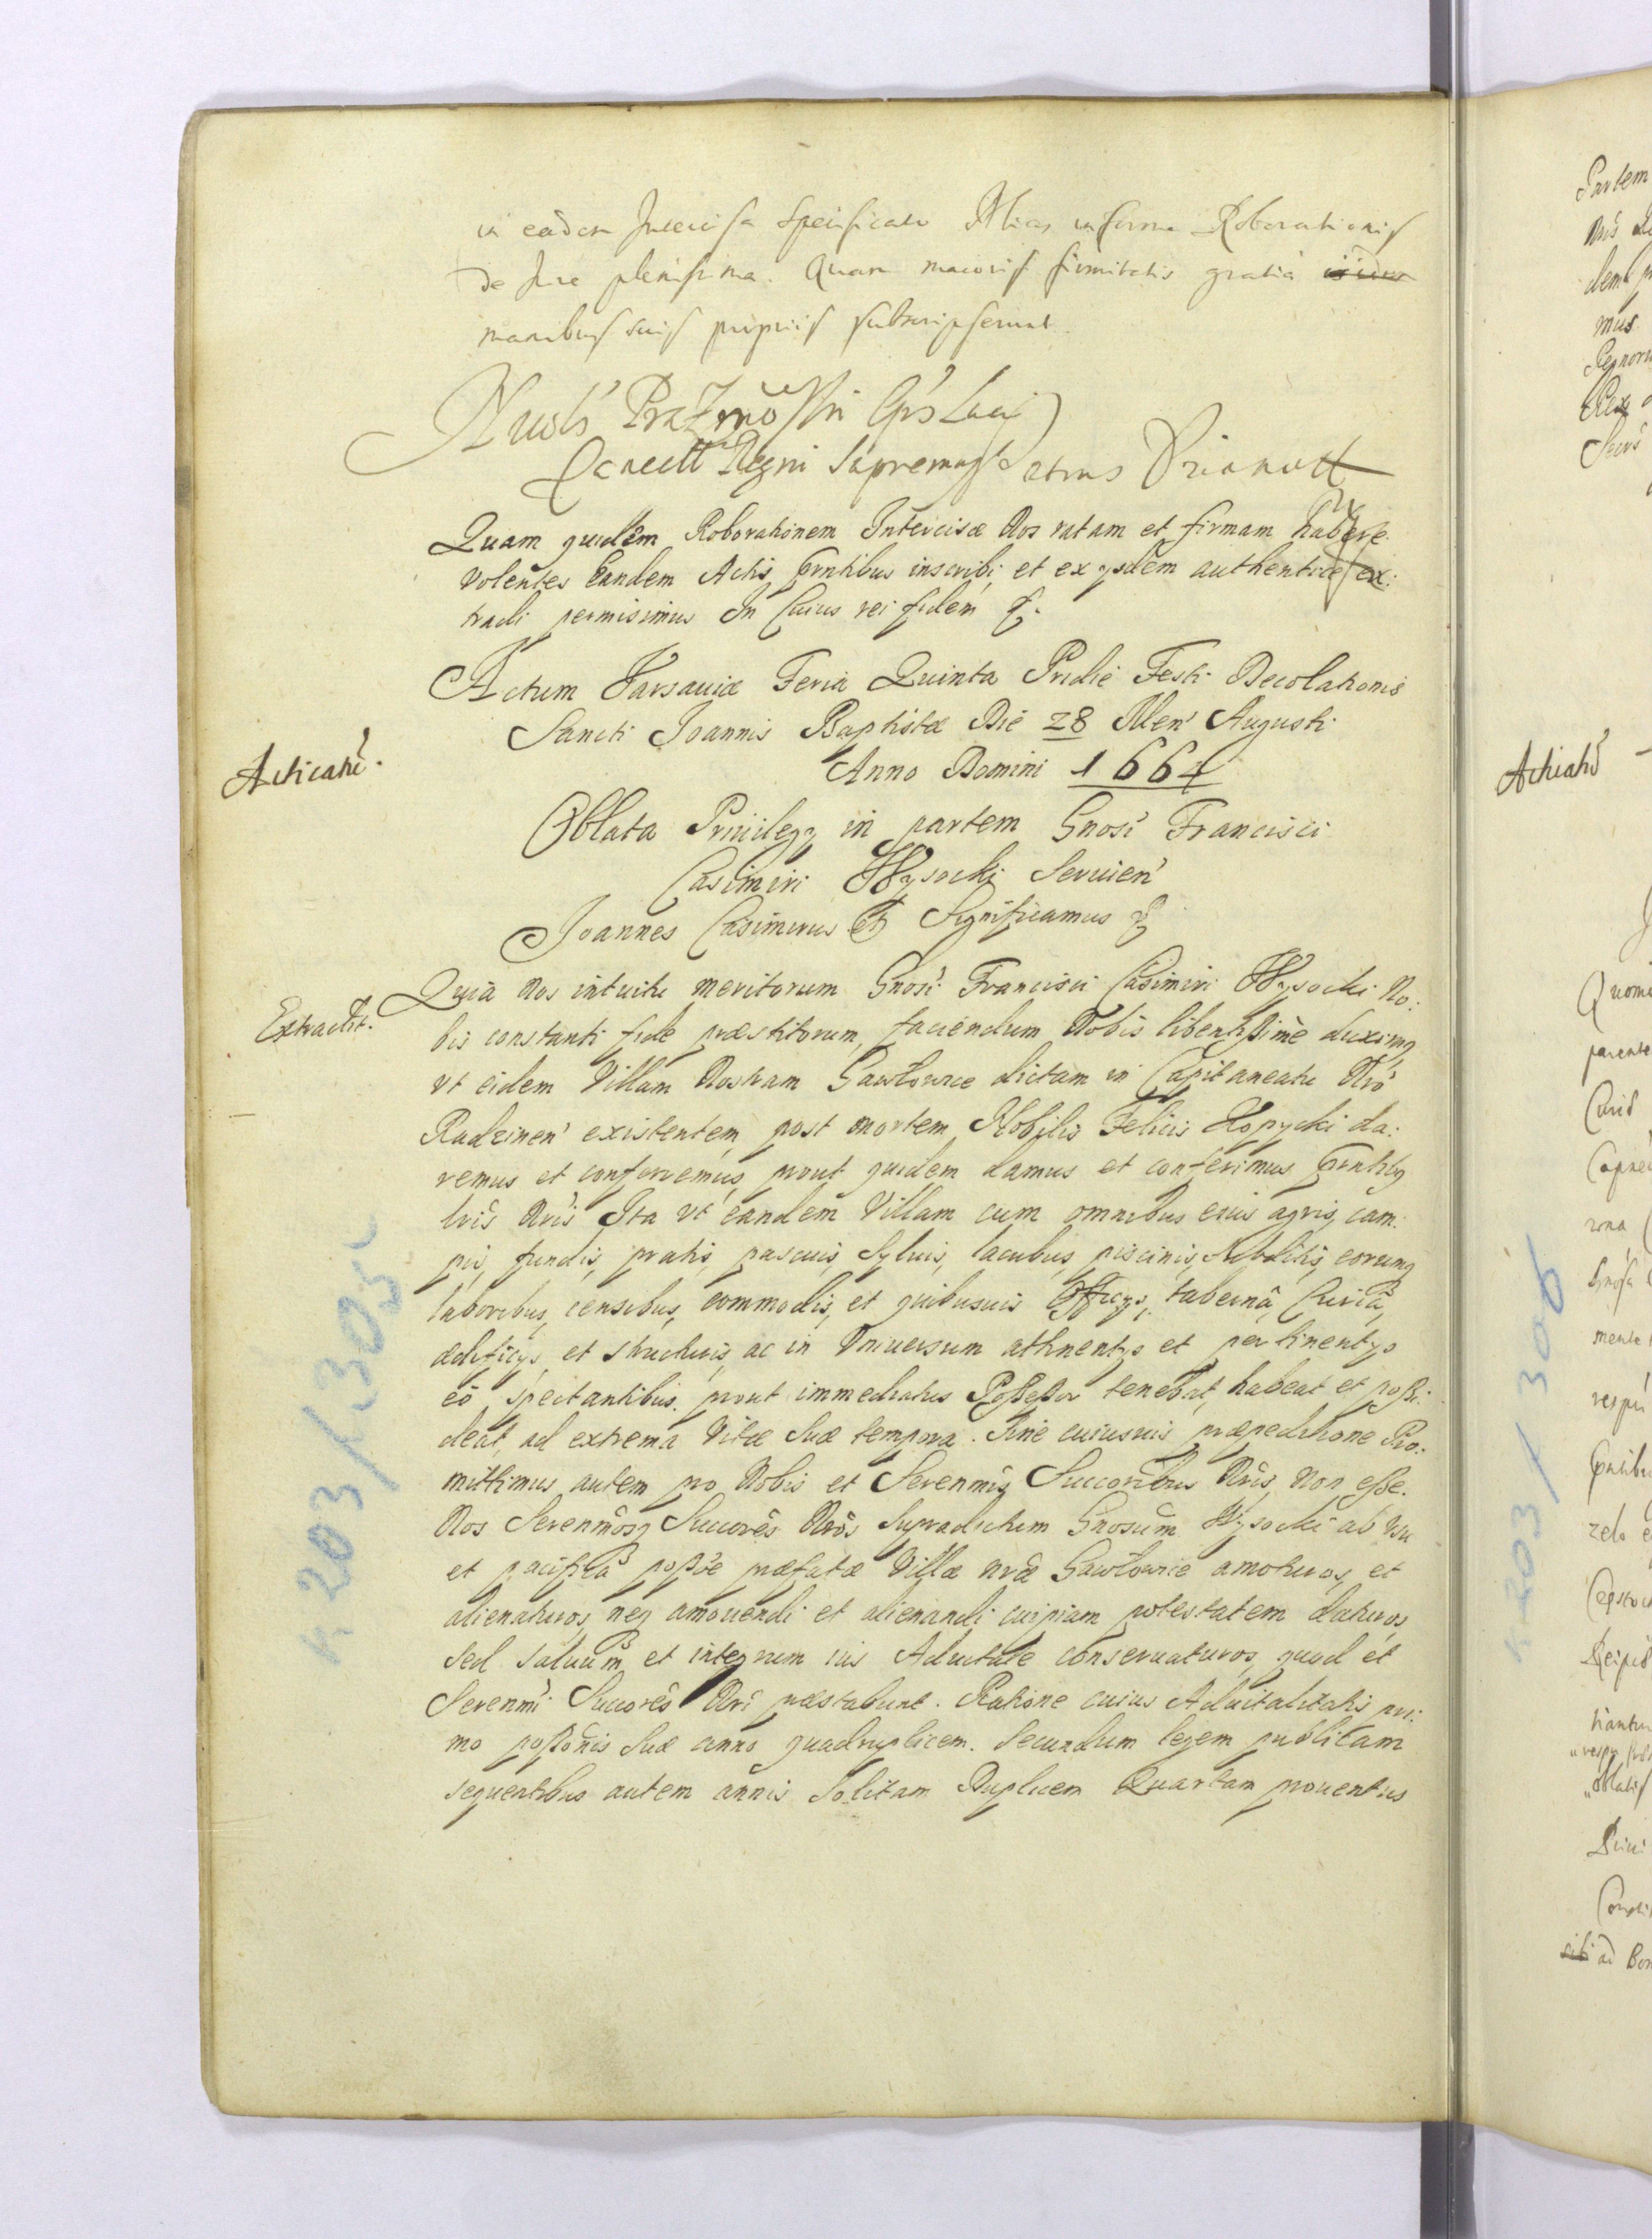 in eadem Intercisa specificato Alias in forma Roborationis
de Jure plenissima. Quam maioris firmitatis gratia
manibus suis propriis subscripserunt.
Regni Supremus Petrus
Quam quidem Roborationem Intercisæ Nos ratam et firmam habere
volentes Eandem Actis Prntibus inscribi et ex ysdem authentice ex:
tradi permisimus In Cuius rei fidem &.
Actum Varsaviæ Feria Quinta Pridie Festi Decolationis
Sancti Joannis Baptistæ Die 28 Men' Augusti
Anno Domini 1664
Acticatũ.
Oblata Priuilegy in partem Gnosi Francisci
Casimiri Wysocki Seruien'
Joannes Casimirus & Significamus &
Extradit.
Quia Nos intuitu meritorum Gnosi Francisci Casimiri Wysocki No:
bis constanti fide præstitorum, faciendum Nobis libentissimè duximq
vt eidem Villam Nostram Gawłowice dictam in Capitaneatu Nro
Radzinen' existentem, post mortem Nobilis Felicis Kopycki da:
remus et conferremus, prout quidem damus et conferimus Prntibq
lris Nris Ita vt eandem Villam cum omnibus eius agris, cam:
pis, fundis, pratis, pascuis, Syluis, lacubus, piscinis, Subditis, eorumq
laboribus, censibus, commodis, et quibusuis Officys, tabernâ, Curiâ,
ædificys, et structuris, ac in Vniuersum attinentys et pertinentys
eò spectantibus. prout immediatus Possessor tenebat, habeat et possi:
deat, ad extrema Vitæ Suæ tempora. Sine cuiusuis præpeditione Pro:
mittimus autem pro Nobis et Serenmis Succoribus Nris, Non esse.
Nos Serenmosq Succores Nros Supradictum Gnosum Wysocki ab vsu
et pacificâ posse præfatæ Villæ nræ Gawłowice amoturos, et
alienaturos, neq amouendi et alienandi cuipiam potestatem daturos,
Sed saluum et integrum ius Aduitale conseruaturos, quod et
Serenmi Succores Nri præstabunt. Ratione cuius Aduitalitatis pri:
mo possonis Suæ anno quadruplicem. Secundum legem publicam
sequentibus autem annis Solitam Duplicem Quartam prouentus
k 203 / 305
Acticatũ
k 203 / 306